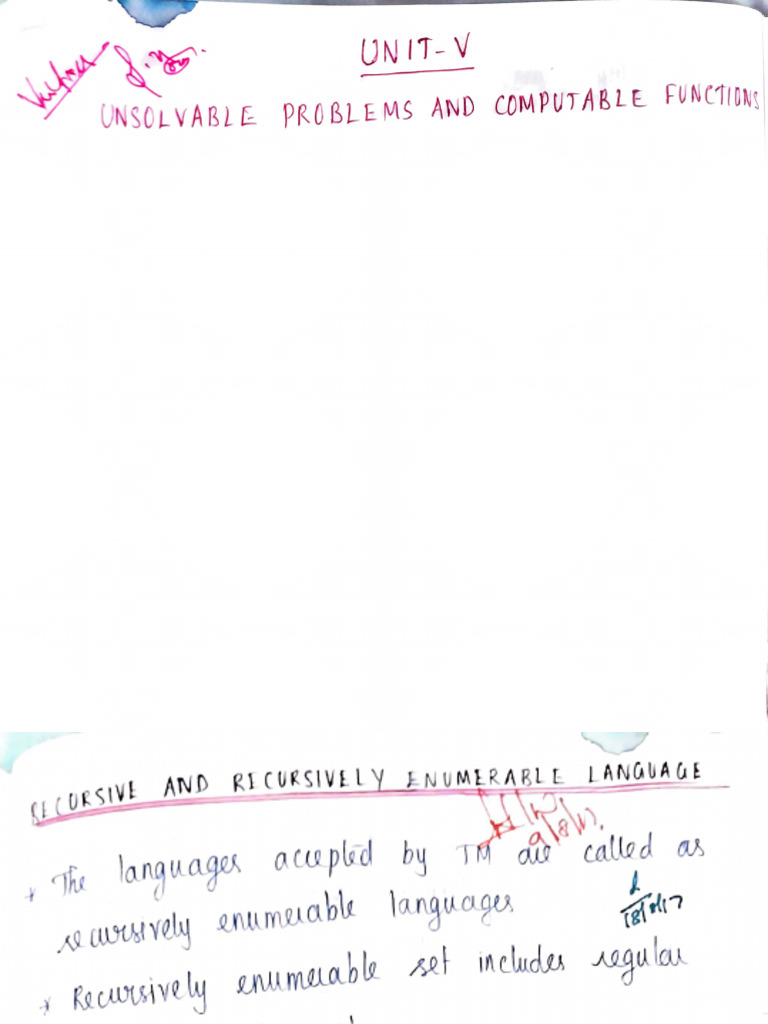 UNIT-V
UNSOLVABLE PROBLEMS AND COMPUTABLE FUNCTIONS
RECURSIVE AND RECURSIVELY ENUMERABLE LANGUAGE
* The languages accepted by TM are called as
recursively enumerable languages
* Recursively enumerable set includes regular